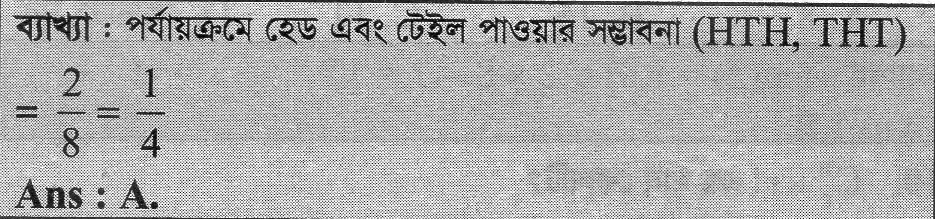 ব্যাখ্যা : পর্যায়ক্রমে হেড এবং টেইল পাওয়ার সম্ভাবনা (HTH, THT)
= 2/8 = 1/4
Ans : A.